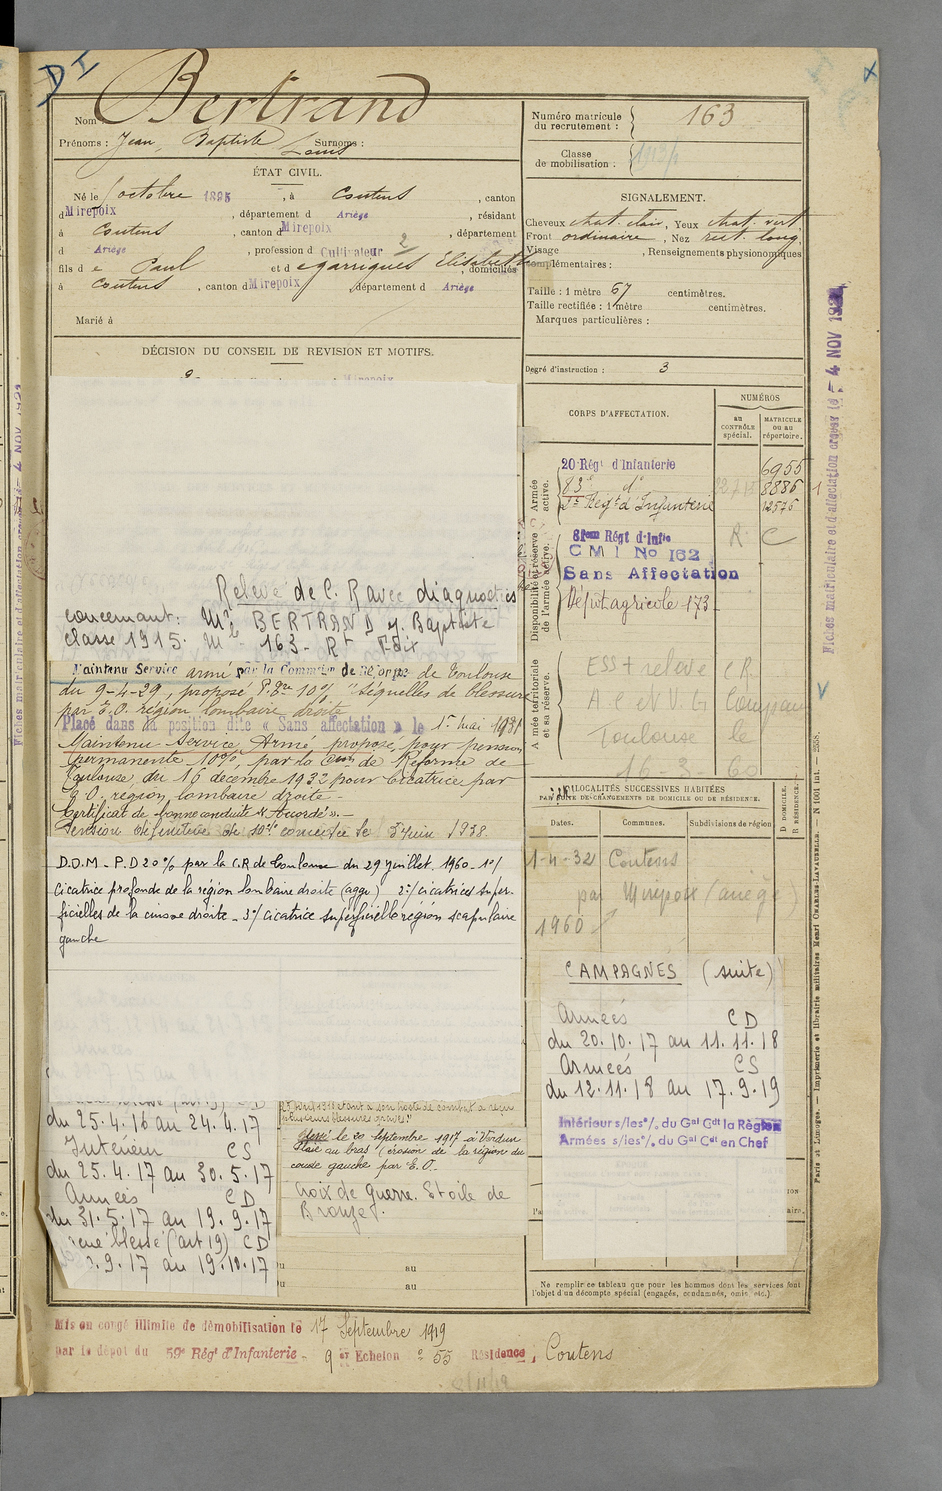 D I
Nom : Bertrand
Prénoms : Jean, Baptiste Louis Surnoms :
ÉTAT CIVIL.
Né le octobre 1895, à Coutens, canton
d Mirepoix, département d Ariège, résidant
à Coutens, canton d Mirepoix, département
d Ariège, profession d Cultivateur 2
fils d e Paul et d e garrigues Elisabeth, domiciliés
à Coutens, canton d Mirepoix, département d Ariège
Marié à
DÉCISION DU CONSEIL DE REVISION ET MOTIFS.
Relevé de C. R avec diagnostics
concernant : Mr BERTRAND J. Baptiste
classe 1915. Mle 163 - Rt Foix
Maintenu Service armé par la Commion de Réforme de Toulouse
du 9-4-29, proposé P. 10% "Séquelles de blessure
par E.O. région lombaire droite
Placé dans la position dite « Sans affectation » le 1er mai 1931
Maintenu Service Armé, proposé pour pension
permanente 10%, par la Com de Réforme de
Toulouse du 16 décembre 1932 pour Cicatrice par
E.O. région lombaire droite -
Certificat de bonne conduite "Accordé". -
Pension définitive de 10% concédée le 3 Juin 1938.
D.O.M - P.D 20% par la C.R de Toulouse du 29 juillet 1960 - 1°/
Cicatrice profonde de la région lombaire droite (aggr) 2°/ cicatrices super-
ficielles de la cuisse droite - 3°/ cicatrice superficielle région scapulaire
gauche
du 25.4.16 au 24.4.17
Intérieur CS
du 25.4.17 au 30.5.17
Armées CD
du 31.5.17 au 19.9.17
blessé (art 19) CD
.9.17 au 19.10.17
étant à son poste de combat a reçu
plusieurs blessures graves."
Blessé le 20 septembre 1917 à Verdun
Plaie au bras (érosion de la région du
coude gauche par E.O.
Croix de guerre. Etoile de
Bronze.
au
au
Mis en congé illimité de démobilisation le 17 Septembre 1919
par le dépôt du 59e Régt d'Infanterie - 9 er Echelon n° 55 Résidence, Coutens
Numéro matricule
du recrutement : 163
Classe
de mobilisation :
SIGNALEMENT.
Cheveux chat. clair, Yeux chat. vert
Front ordinaire, Nez rect. long
Visage, Renseignements physionomiques
complémentaires :
Taille : 1 mètre 67 centimètres.
Taille rectifiée : 1 mètre centimètres.
Marques particulières :
Degré d'instruction : 3
CORPS D'AFFECTATION.
NUMÉROS
au
CONTRÔLE
spécial.
MATRICULE
ou au
répertoire.
Armée
active.
20 Régt d'Infanterie 6955
83e do 8886
Regt d'Infanterie 12576
Disponibilité et réserve
de l'armée active.
81eme Régt d'Infie R C
CMI No 162
Sans Affectation
Dépôt agricole 173 -
Armée territoriale
et sa réserve.
ESS + relevé CR
Toulouse le
16-2-60
LOCALITÉS SUCCESSIVES HABITÉES
PAR SUITE DE CHANGEMENTS DE DOMICILE OU DE RÉSIDENCE.
Dates. Communes. Subdivisions de région
D DOMICILE.
R RÉSIDENCE.
1-4-32 Coutens
par Mirepoix (ariège)
1960
CAMPAGNES (suite)
Armées CD
du 20.10.17 au 11.11.18
Armées CS
du 12.11.18 au 17.9.19
Intérieur s/les °/. du Gal Cdt la Région
Armées s/les °/. du Gal Cdt en Chef
Ne remplir ce tableau que pour les hommes dont les services font
l'objet d'un décompte spécial (engagés, condamnés, omis, etc.)
Fiches matriculaire et d'affectation créées le - 4 NOV
Paris et Limoges. — Imprimerie et librairie militaires Henri CHARLES-LAVAUZELLE. — N 1001 int. — 2538.
Fiches matriculaire et d'affectation